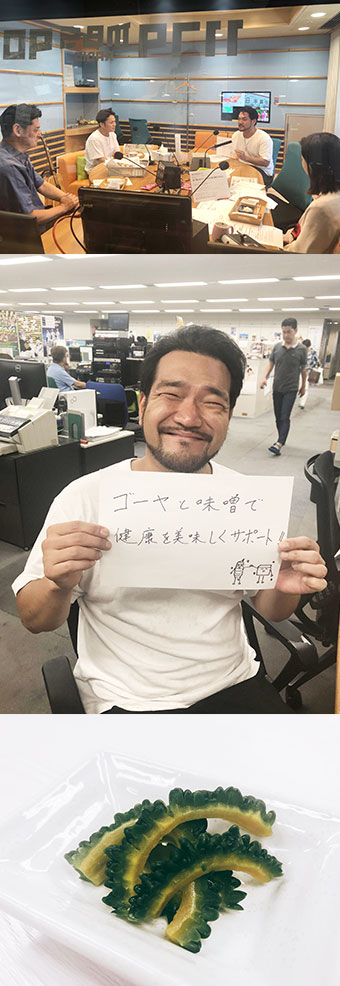 ゴーヤと味噌で
健康を美味しくサポート!!